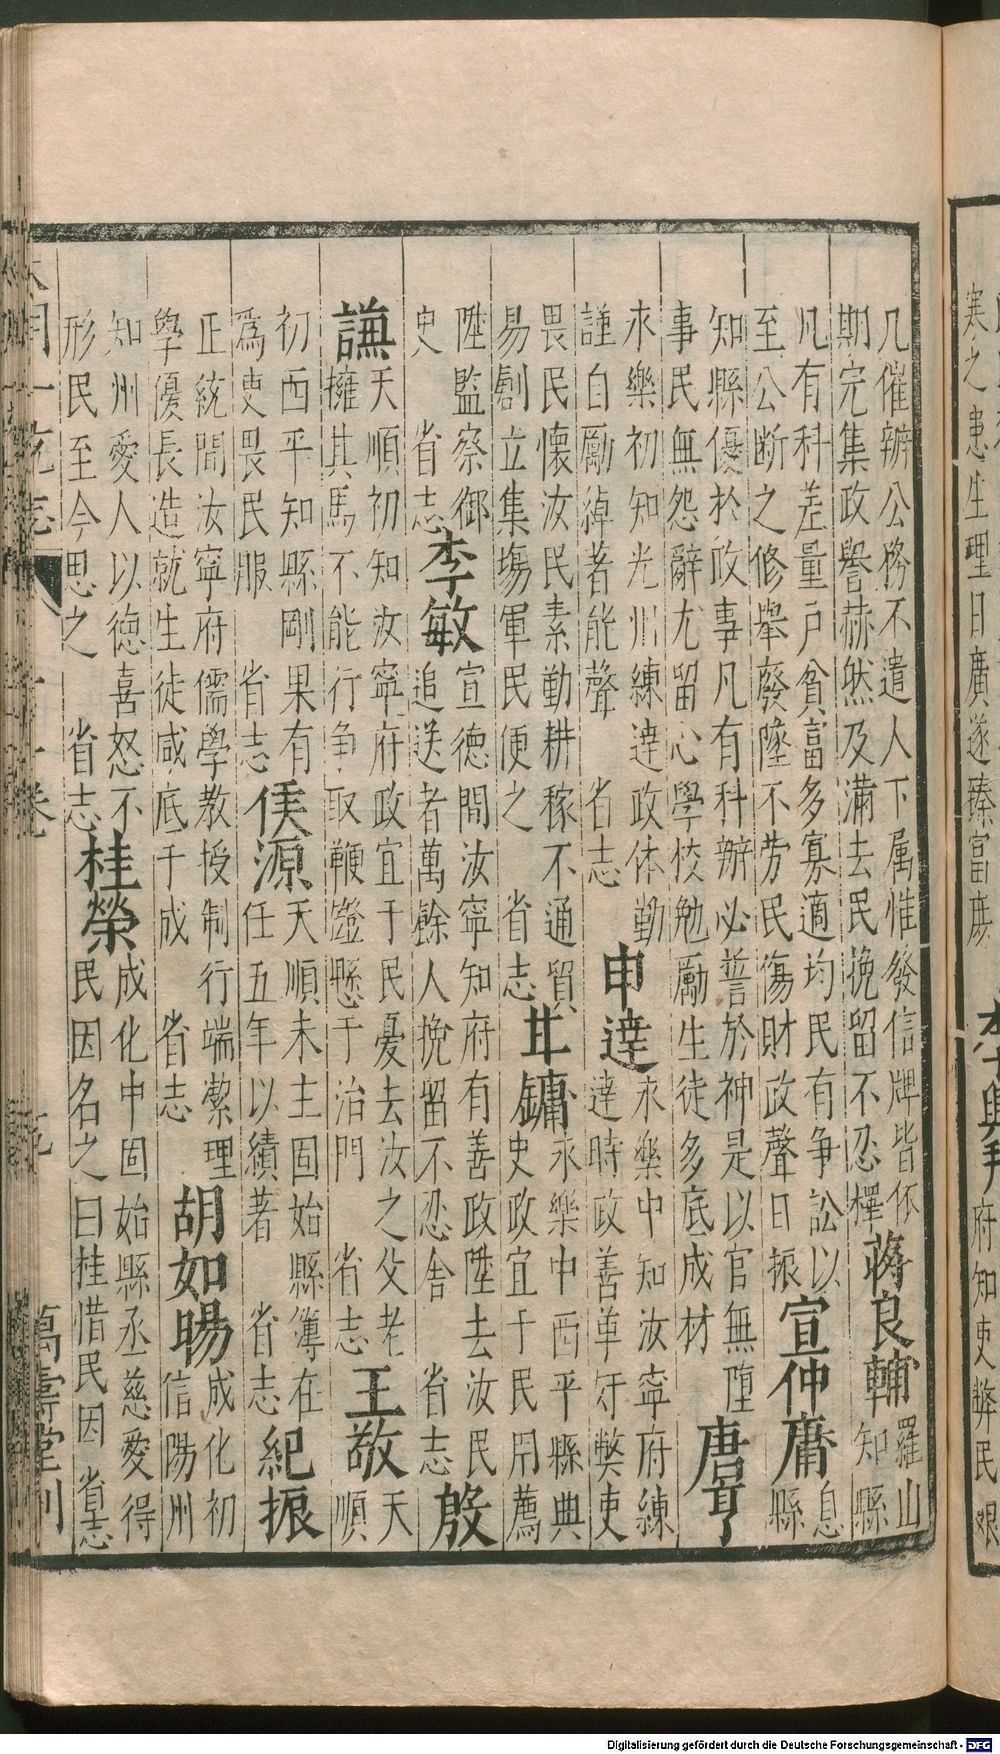 寒之患生理日廣遂臻富庶
李興
府知吏弊民艱
几催辦公務不遣人下属惟發信牌皆依
期完集政譽赫然及滿去民挽留不忍釋
蔣良輔
羅山
知縣
凡有科差量户貧富多寡適均民有争訟以
至公断之修舉廢墜不劳民傷財政聲日振
宣仲庸
息
縣
知縣優於政事凡有科辦必誓於神是以官無墮
事民無怨辭尤留心學校勉勵生徒多底成材
唐亨
永樂初知光州練達政体勤
謹自勵綽者能聲 省志
申達
永樂中知汝寧府練
達時政善革奸弊吏
畏民懷汝民素勤耕稼不通貿
易創立集塲軍民便之 省志
甘鏞
永樂中西平縣典
史政宜于民用薦
陞監察御
史 省志
李敏
宣德間汝寧知府有善政陞去汝民
追送者萬餘人挽留不忍舍 省志
殷
謙
天順初知汝寧府政宜于民憂去汝之父老
擁其馬不能行争取鞭鐙懸于治門 省志
王敬
天
順
初西平知縣剛果有
爲吏畏民服 省志
侯源
天順末主固始縣簿在
任五年以績著 省志
紀振
正統間汝寧府儒學教授制行端潔理
學優長造就生徒咸底于成 省志
胡如暘
成化初
信陽州
知州愛人以德喜怒不
形民至今思之 省志
桂榮
成化中固始縣丞慈愛得
民因名之曰桂惜民因 省志
大明一统志
萬壽堂刊
Digitalisierung gefördert durch die Deutsche Forschungsgemeinschaft - DFG